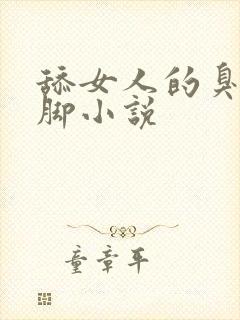 舔女人的臭
脚小说
童章平